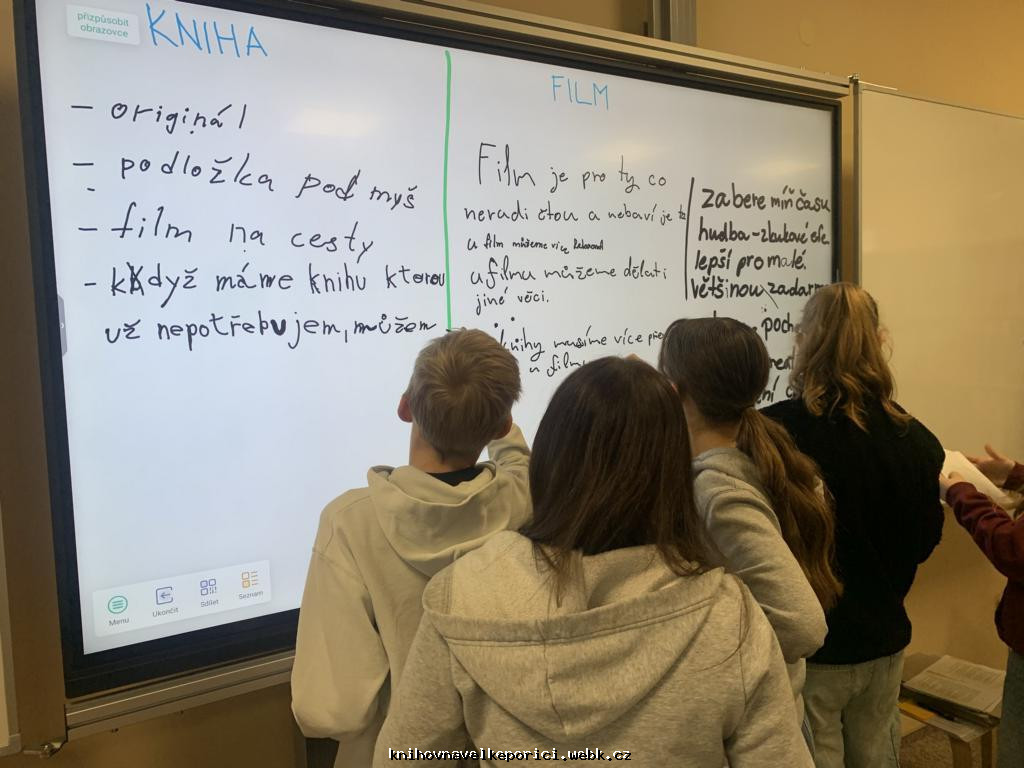 přizpůsobit
obrazovce
KNIHA
- originál
- podložka pod myš
- film na cesty
- když máme knihu kterou
už nepotřebujem, můžem
FILM
Film je pro ty co
neradi čtou a nebaví je to
u film můžeme více
u filmu můžeme dělati
jiné věci.
knihy musíme více
u filmu
zabere míň času
hudba-zbukové efe
lepší pro malé.
většinou zadarm
poch
Menu
Ukončit
Sdílet
Seznam
knihovnavelkeporici.webk.cz